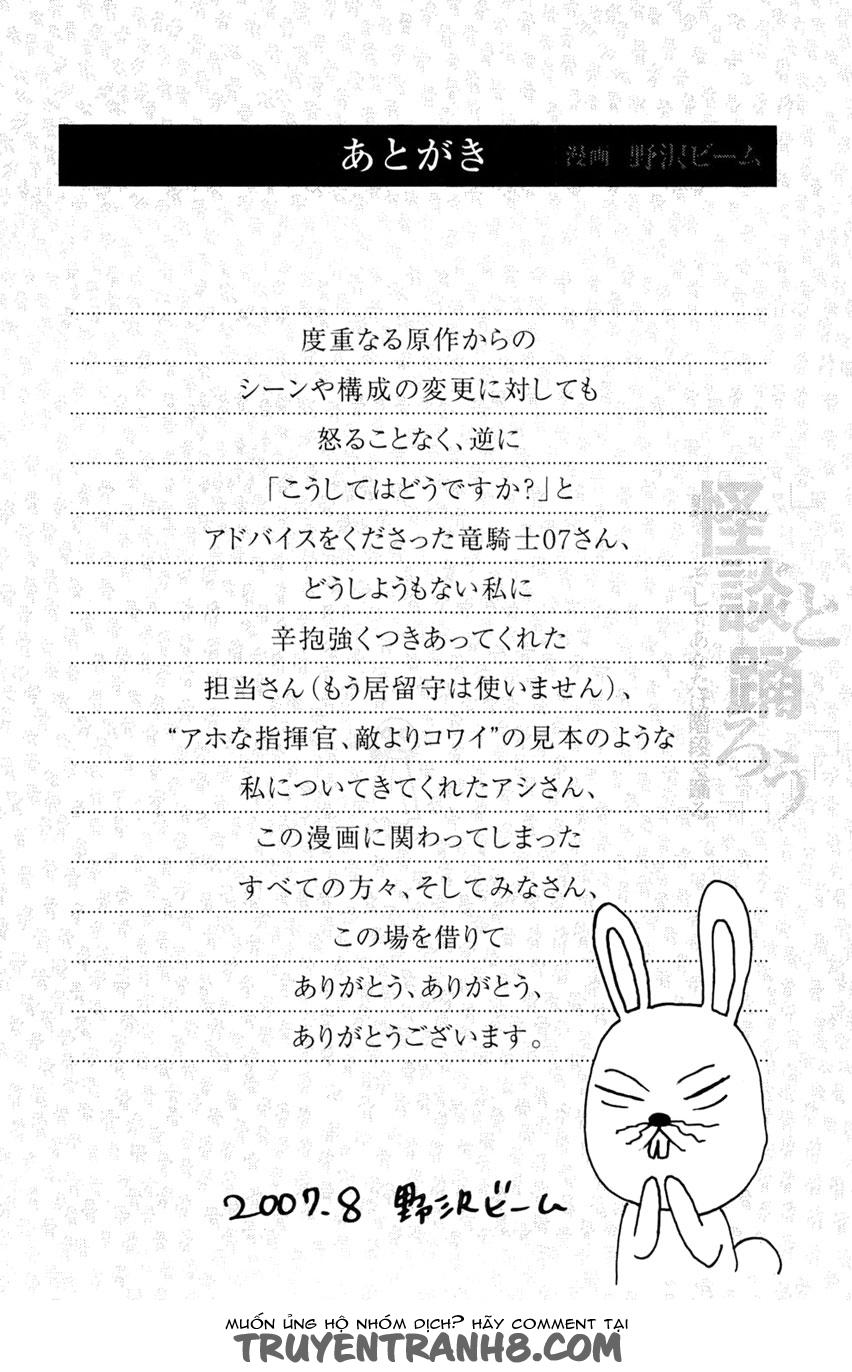 あとがき
漫画 野沢ビーム
度重なる原作からの
シーンや構成の変更に対しても
怒ることなく、逆に
「こうしてはどうですか?」と
アドバイスをくださった竜騎士07さん、
どうしようもない私に
辛抱強くつきあってくれた
担当さん(もう居留守は使いません)、
“アホな指揮官、敵よりコワイ”の見本のような
私についてきてくれたアシさん、
この漫画に関わってしまった
すべての方々、そしてみなさん、
この場を借りて
ありがとう、ありがとう、
ありがとうございます。
怪談と踊ろう
2007.8 野沢ビーム
MUỐN ỦNG HỘ NHÓM DỊCH? HÃY COMMENT TẠI
TRUYENTRANH8.COM